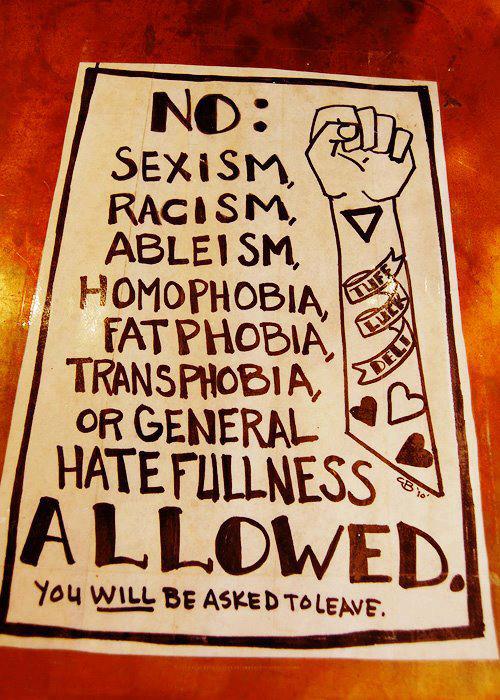 NO:
SEXISM,
RACISM,
ABLEISM,
HOMOPHOBIA,
FATPHOBIA,
TRANSPHOBIA,
OR GENERAL
HATEFULLNESS
ALLOWED.
YOU WILL BE ASKED TO LEAVE.
TUFF
LUCK
DELI
CB '10'